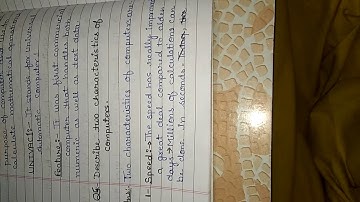 purpose of computer was to
calculate mathematical operation
UNIVAC:- It stands for universal
Automatic Computer!
Feature:- It was first commercial
computer that handles both
numeric as well as text data.
Q5 Describe two characteristics of
computers.
Ans:- Two characteristics of computers are
1- Speed:→ The speed has really improved
a great deal compared to older
days → Millions of calculations can
be done in seconds.